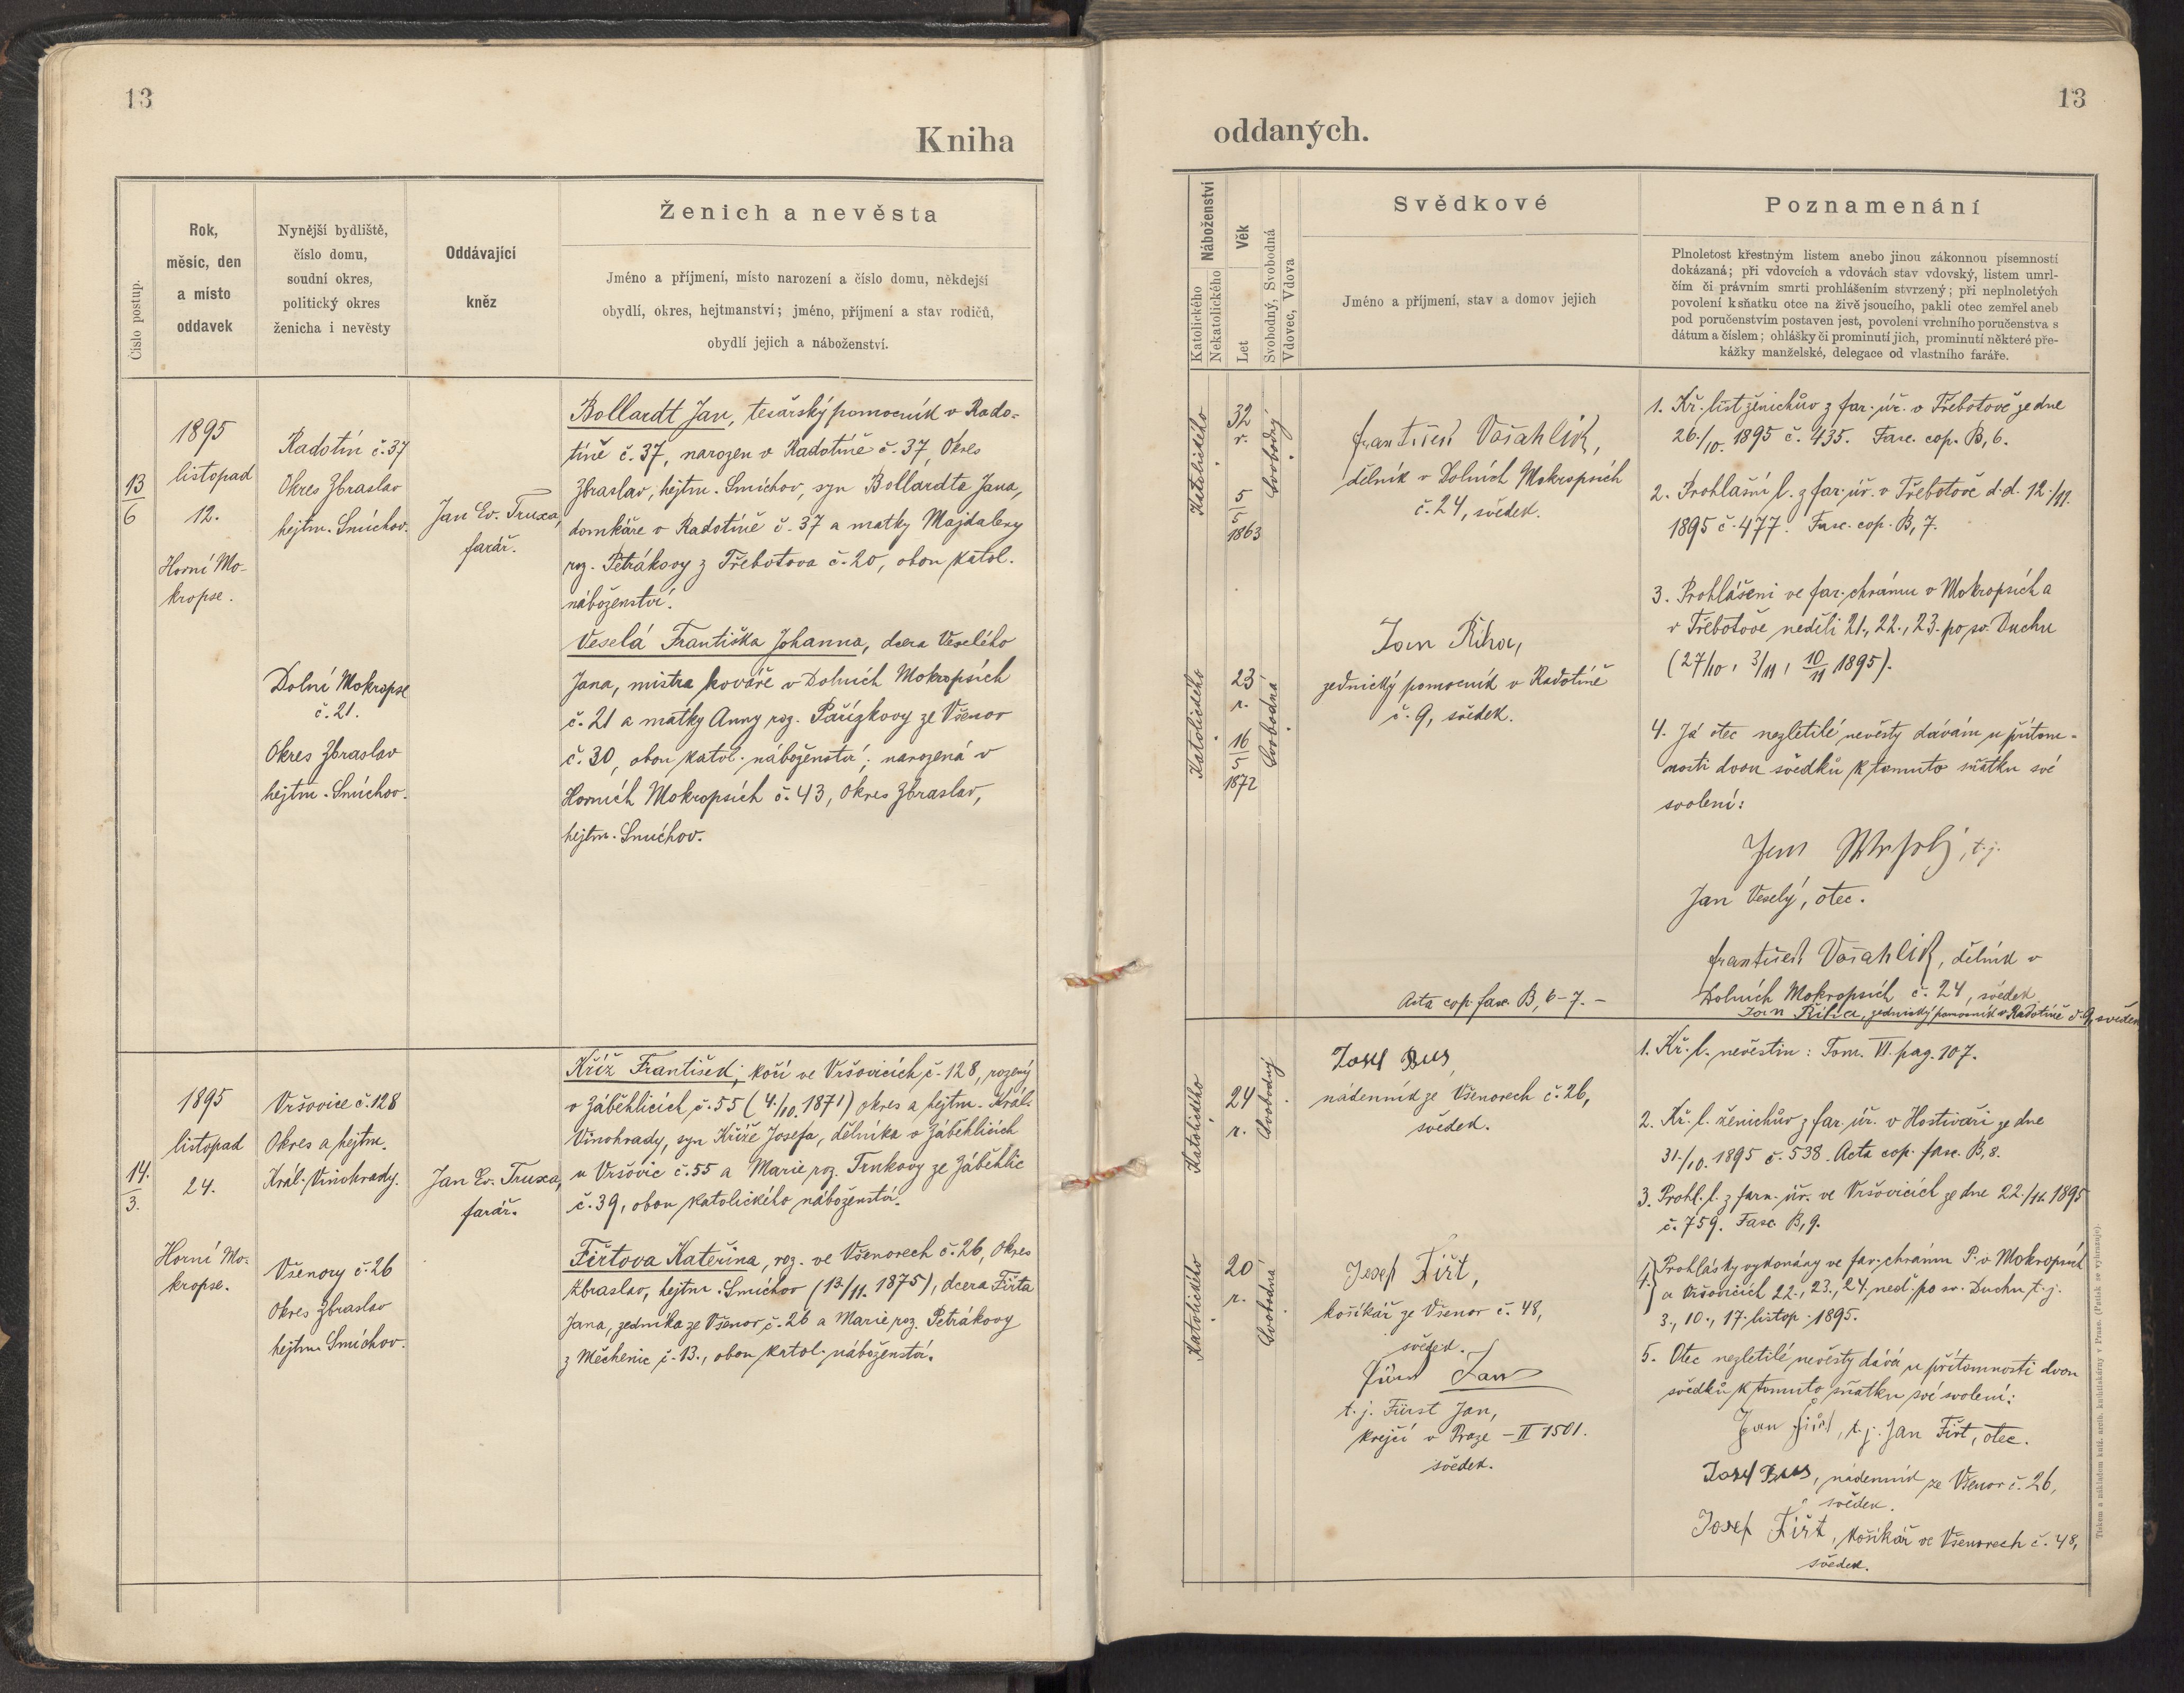 13
Kniha
Číslo postup.
Rok,
měsíc, den
a místo
oddavek
Nynější bydliště,
číslo domu,
soudní okres,
politický okres
ženicha i nevěsty
Oddávající
kněz
Ženich a nevěsta
Jméno a příjmení, místo narození a číslo domu, někdejší
obydlí, okres, hejtmanství; jméno, příjmení a stav rodičů,
obydlí jejich a náboženství.
13
6
1895
listopad
12.
Horní Mo-
kropse.
Radotín č. 37
Okres Zbraslav
hejtm. Smíchov.
Jan Ev. Truxa,
farář.
Bollardt Jan, tesařský pomocník v Rado-
tíně č. 37, narozen v Radotíně č. 37, Okres
Zbraslav, hejtm. Smíchov, syn Bollardta Jana,
domkáře v Radotíně č. 37 a matky Majdaleny
roz. Petrákovy z Třebotova č. 20, obou katol.
náboženství.
Dolní Mokropse
č. 21.
Okres Zbraslav
hejtm. Smíchov.
Veselá Františka Johanna, dcera Veselého
Jana, mistra kováře v Dolních Mokropsích
č. 21 a matky Anny roz. Pařízkovy ze Všenor
č. 30, obou katol. náboženství; narozená v
Horních Mokropsích č. 43, Okres Zbraslav,
hejtm. Smíchov.
14.
3.
1895
listopad
24.
Horní Mo-
kropse.
Vršovice č. 128
Okres a hejtm.
Král. Vinohrady.
Jan Ev. Truxa,
farář.
Kříž František, kočí ve Vršovicích č. 128, rozený
v Záběhlicích č. 55 (4./10. 1871) okres a hejtm. Král.
Vinohrady, syn Kříže Josefa, dělníka v Záběhlicích
u Vršovic č. 55 a Marie roz. Trnkovy ze Záběhlic
č. 39, obou katolického náboženství.
Všenory č. 26
Okres Zbraslav
hejtm. Smíchov.
Fiřtova Kateřina, roz. ve Všenorech č. 26, Okres
Zbraslav, hejtm. Smíchov (13./11. 1875), dcera Fiřta
Jana, zedníka ze Všenor č. 26 a Marie roz. Petrákovy
z Měchenic č. 13., obou katol. náboženství.
13
oddaných.
Náboženství
Katolického
Nekatolického
Věk
Let
Svobodný, Svobodná
Vdovec, Vdova
Svědkové
Jméno a příjmení, stav a domov jejich
Poznamenání
Plnoletost křestným listem anebo jinou zákonnou písemností
dokázaná; při vdovcích a vdovách stav vdovský, listem umrl-
čím či právním smrti prohlášením stvrzený; při neplnoletých
povolení k sňatku otce na živě jsoucího, pakli otec zemřel aneb
pod poručenstvím postaven jest, povolení vrchního poručenstva s
dátum a číslem; ohlášky či prominutí jich, prominutí některé pře-
kážky manželské, delegace od vlastního faráře.
Katolického
32
r.
5
5
1863
Svobodný
František Vošahlik,
dělník v Dolních Mokropsích
č. 24, svědek.
Katolického
23
r.
16
5
1872
Svobodná
Jan Řiha,
zednický pomocník v Radotíně
č. 9, svědek.
Acta cop. fasc. B, 6-7. -
1. Kř. list ženichův z far. úř. v Třebotově ze dne
26./10. 1895 č. 435. Fasc. cop. B, 6.
2. Prohlašní l. z far. úř. v Třebotově d. d. 12./11.
1895 č. 477. Fasc. cop. B, 7.
3. Prohlášeni ve far. chrámu v Mokropsích a
v Třebotově neděli 21., 22., 23. po sv. Duchu
(27/10, 3/11, 10/11 1895).
4. Já otec nezletilé nevěsty dávám u přítom-
nosti dvou svědků k tomuto sňatku své
svolení:
Jan Wesely, t. j.
Jan Veselý, otec.
František Vošahlik, dělník v
Dolních Mokropsích č. 24, svědek
Jan Řiha, zednický pomocník v Radotíně č. 9, svědek
Katolického
24
r.
Svobodný
Josef Bus,
nádenník ze Všenorech č. 26,
svědek.
Katolického
20
r.
Svobodná
Josef Fiřt,
košíkář ze Všenor č. 48,
svědek.
Fürst Jan
t. j. Fürst Jan,
krejčí v Praze - II 1501.
svědek.
1. Kř. l. nevěstin: Tom. VI. pag. 107.
2. Kř. l. ženichův z far. úř. v Hostivaři ze dne
31./10. 1895 č. 538. Acta cop. fasc. B, 8.
3. Prohl. l. z farn. úř. ve Vršovicích ze dne 22./11. 1895
č. 759. Fasc. B, 9.
4. Prohlášky vykonány ve far. chrámu P. v Mokropsích
a Vršovicích 22., 23., 24. neděl. po sv. Duchu t. j.
3., 10., 17. listop. 1895.
5. Otec nezletilé nevěsty dává u přítomnosti dvou
svědků k tomuto sňatku své svolení:
Jan Fiřt, t. j. Jan Fiřt, otec.
Josef Bus, nádenník ze Všenor č. 26,
svědek.
Josef Fiřt, košíkář ve Všenorech č. 48,
svědek.
Tiskem a nákladem kníž. arcib. knihtiskárny v Praze. (Patisk se vyhrazuje).